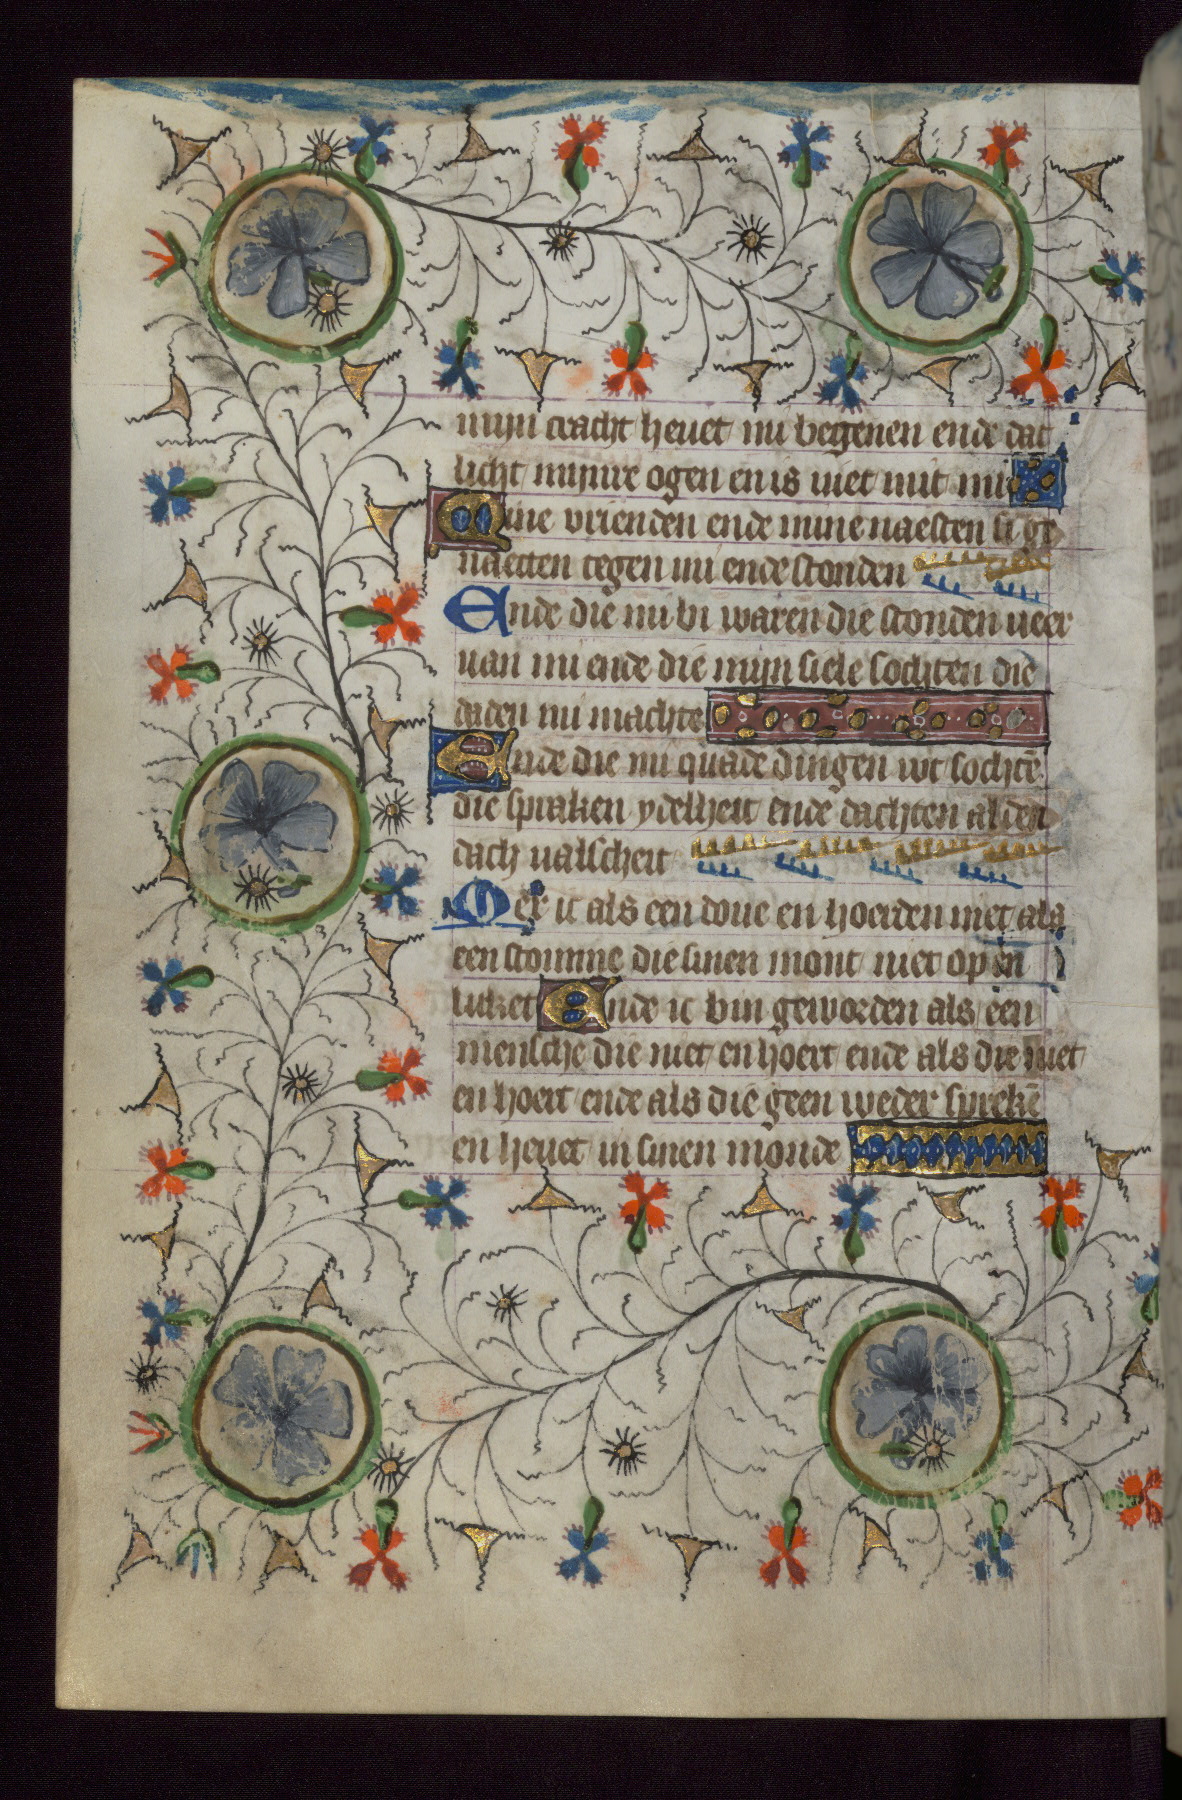 mijn cracht heuet mi begeuen ende dat
licht mijnre ogen en is niet mit mi
Mine vrienden ende mine naesten si ge
naecten tegen mi ende stonden
Ende die mi bi waren die stonden veer
van mi ende die mijn siele sochten die
daden mi machte
Ende die mi quade dingen wt sochtē
die spraken ydelheit ende dachten al den
dach valscheit
Mer ic als een doue en hoerden niet als
een stomme die sinen mont niet op en
luket Ende ic bin geworden als een
mensche die niet en hoert ende als die niet
en hoert ende als die geen weder sprekē
en heuet in sinen monde